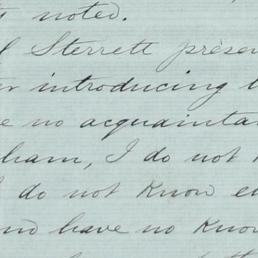 noted.
Sterrett presen
introducing
no acquainta
ham, I do not
do not know
have no know